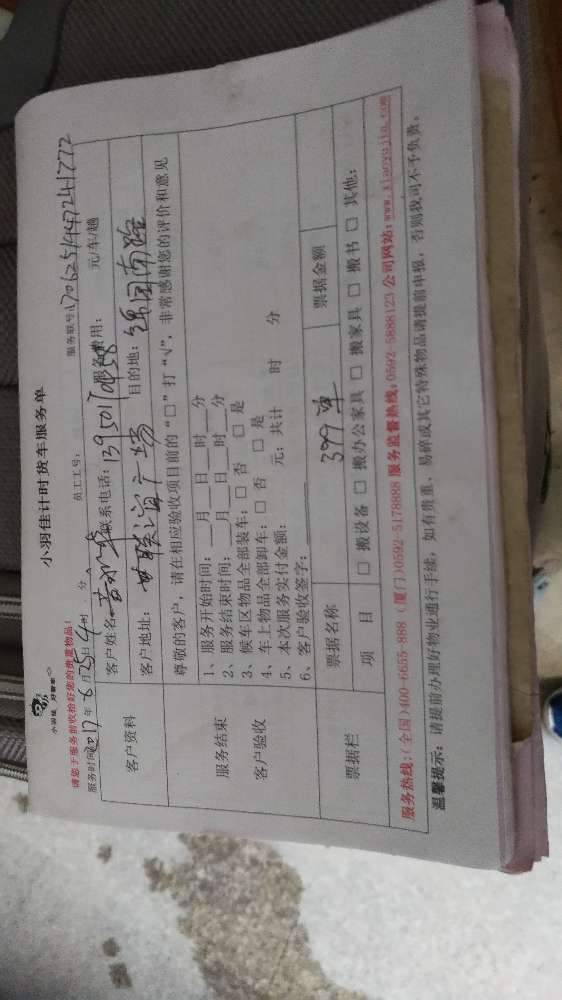 小羽佳计时货车服务单
小羽佳，好管家
请您于服务前收检好您的贵重物品!
服务联号:1706251447241772
员工工号:
服务时间:2017年6月25日4时 分
客户资料
客户姓名: 联系电话: 服务费用: 元/车/趟
客户地址: 联谊广场 目的地:
服务结束
客户验收
尊敬的客户，请在相应验收项目前的“□”打“√”，非常感谢您的评价和意见
1、服务开始时间:___月___日___时___分
2、服务结束时间:___月___日___时___分
3、候车区物品全部装车: □ 否 □ 是
4、车上物品全部卸车: □ 否 □ 是
5、本次服务实付金额: 元; 共计 时 分
6、客户验收签字:
票据栏
票据名称 399单 票据金额
项 目 □ 搬设备 □ 搬办公家具 □ 搬家具 □ 搬书 □ 其他:
服务热线:(全国)400-6655-888 (厦门)0592-5178888 服务监督热线:0592-5888123 公司网站:www.xiaoyujia.com
温馨提示: 请提前办理好物业通行手续，如有贵重、易碎或其它特殊物品请提前申报，否则我司不予负责。